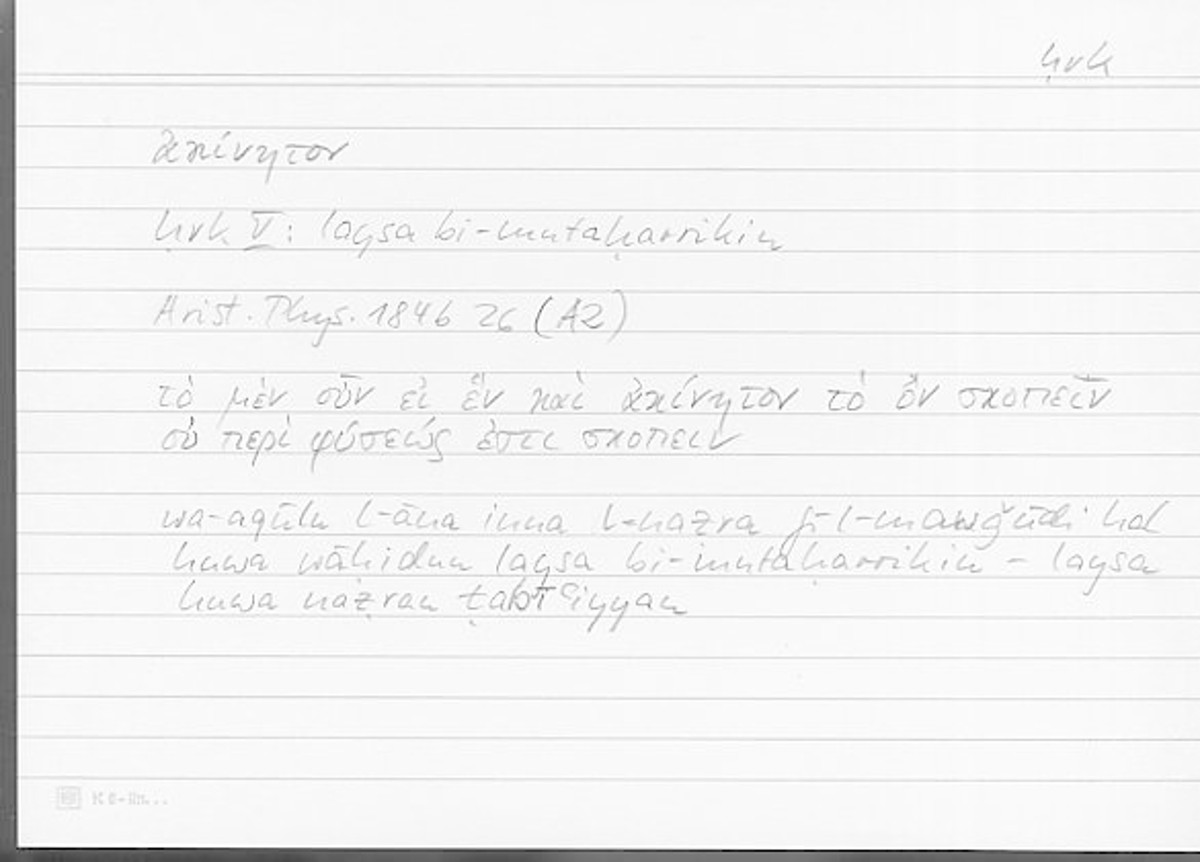 ḥrk
ἀκίνητον
ḥrk V: laysa bi-mutaḥarrikin
Arist. Phys. 184b 26 (A2)
τὸ μὲν οὖν εἰ ἓν καὶ ἀκίνητον τὸ ὂν σκοπεῖν
οὐ περὶ φύσεώς ἐστι σκοπεῖν
wa-aqūlu l-āna inna l-naẓra fī l-mawǧūdi hal
huwa wāhidun laysa bi-mutaḥarrikin – laysa
huwa naẓran ṭabīʿiyyan